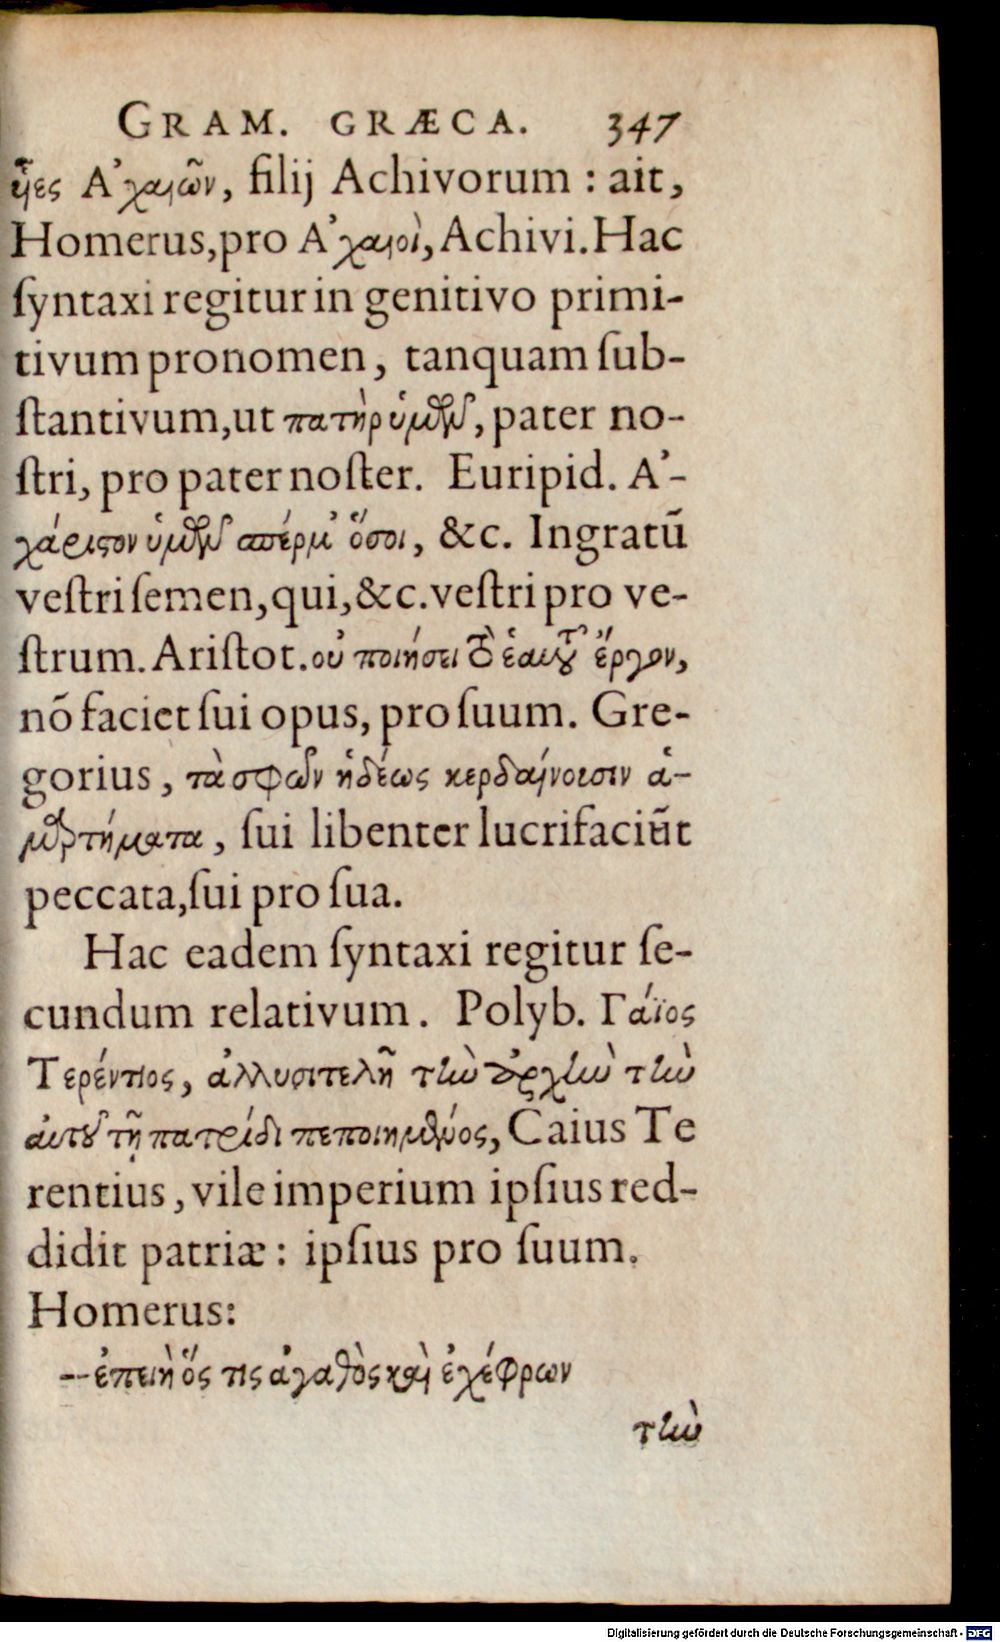 GRAM. GRÆCA. 347
ῆες Ἀχαιῶν, filij Achivorum : ait,
Homerus,pro Ἀχαιοὶ, Achivi.Hac
ſyntaxi regitur in genitivo primi-
tivum pronomen, tanquam ſub-
ſtantivum,ut πατὴρ ὑμῶν, pater no-
ſtri, pro pater noſter. Euripid. Ἀ-
χάριστον ὑμῶν σπέρμ' ὅσοι, &c. Ingratū
veſtri ſemen,qui,&c.veſtri pro ve-
ſtrum. Ariſtot.οὐ ποιήσει τὸ ἑαυτοῦ ἔργον,
nō faciet ſui opus, pro ſuum. Gre-
gorius, τὰ σφῶν ἡδέως κερδαίνουσιν ἁ-
μαρτήματα, ſui libenter lucrifaciūt
peccata,ſui pro ſua.
Hac eadem ſyntaxi regitur ſe-
cundum relativum. Polyb. Γάϊος
Τερέντιος, ἀλλυσιτελῆ τὴν ἀρχὴν τὴν
αὐτοῦ τῇ πατρίδι πεποιημένος, Caius Te
rentius, vile imperium ipſius red-
didit patriæ: ipſius pro ſuum.
Homerus:
--ἐπειὴ ὅς τις ἀγαθὸς καὶ ἐχέφρων
τὴν
Digitalisierung gefördert durch die Deutsche Forschungsgemeinschaft - DFG